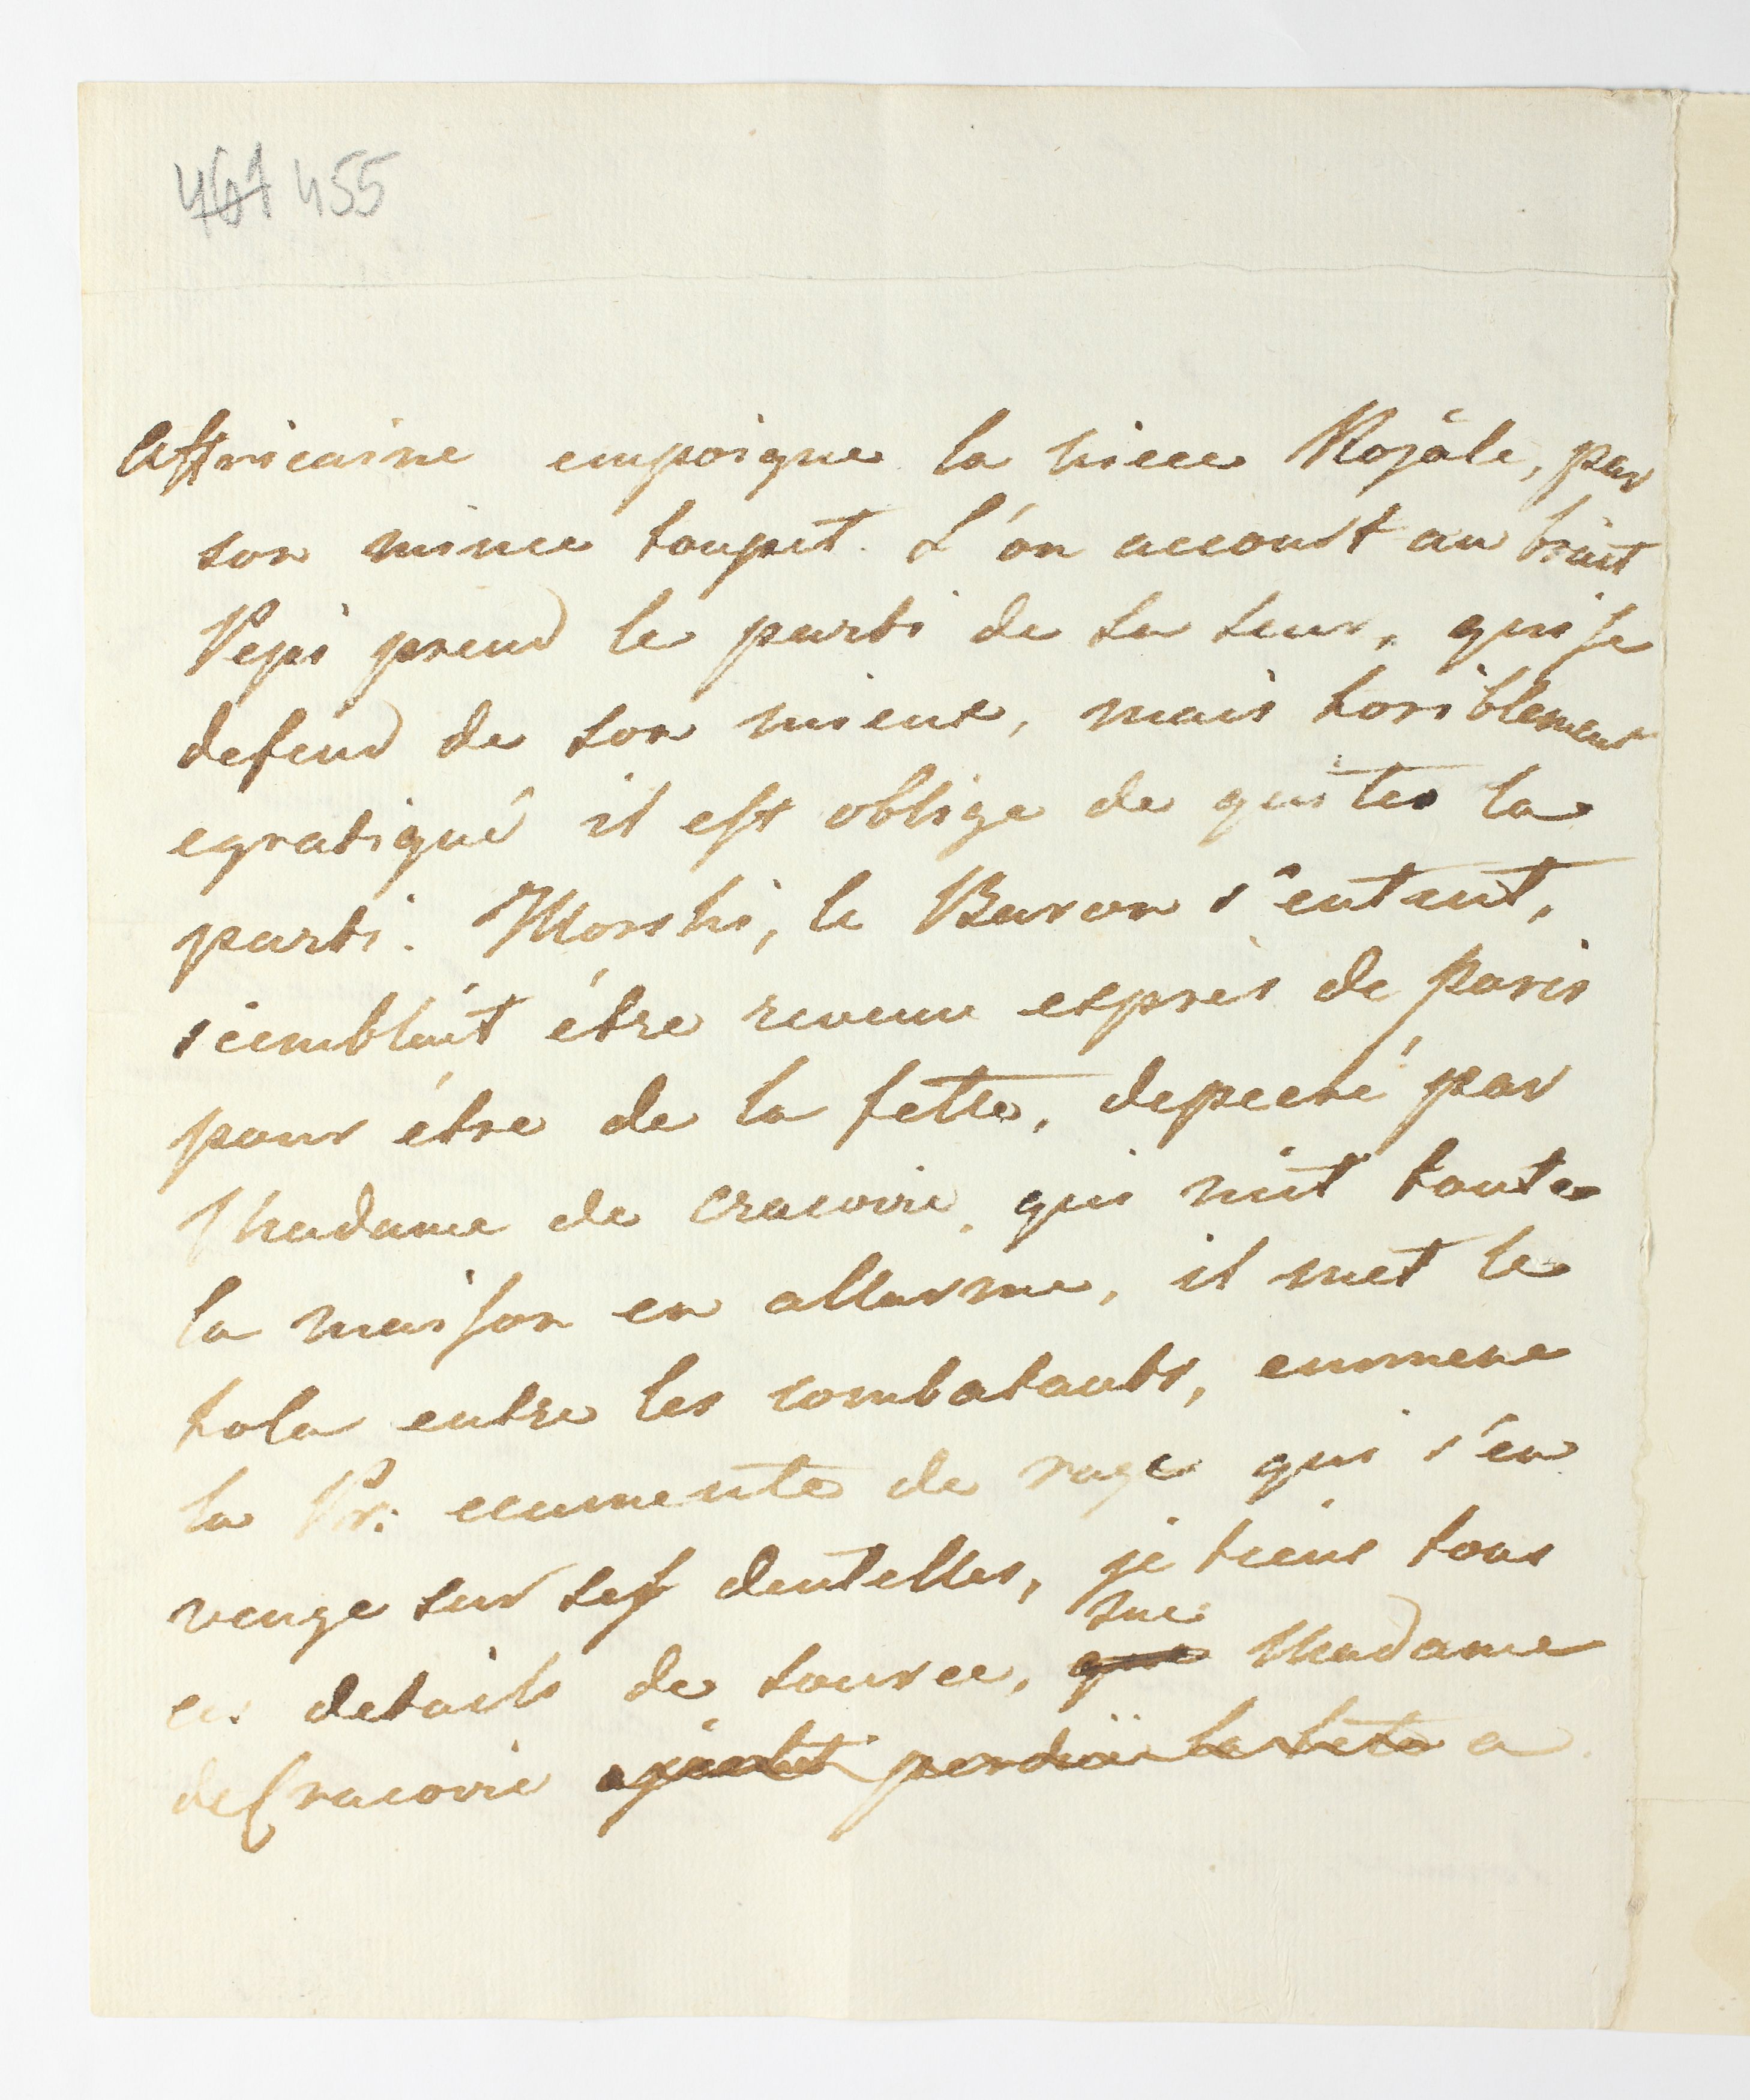 461 455
Affricaine empoigne la niece Rojâle, par
son mince toupet. L'on accourt au bruit
Pepi prend le parti de sa seur, qui se
defend de son mieux, mais toriblement
egratigné il est obligé de quiter la
parti. Morski, le Baron s'entant,
sceemblait étre revenu expres de Paris
pour étre de la fette, depeché par
Madame de Cracovie, qui mit toute
la maison en allarme, il met le
hola entre les combatants, emmene
la Pr: ecumente de rage qui s'en
venge sur ses dentelles, je tiens tous
ces details de source, que Madame
de Cracovie perdue la tete a